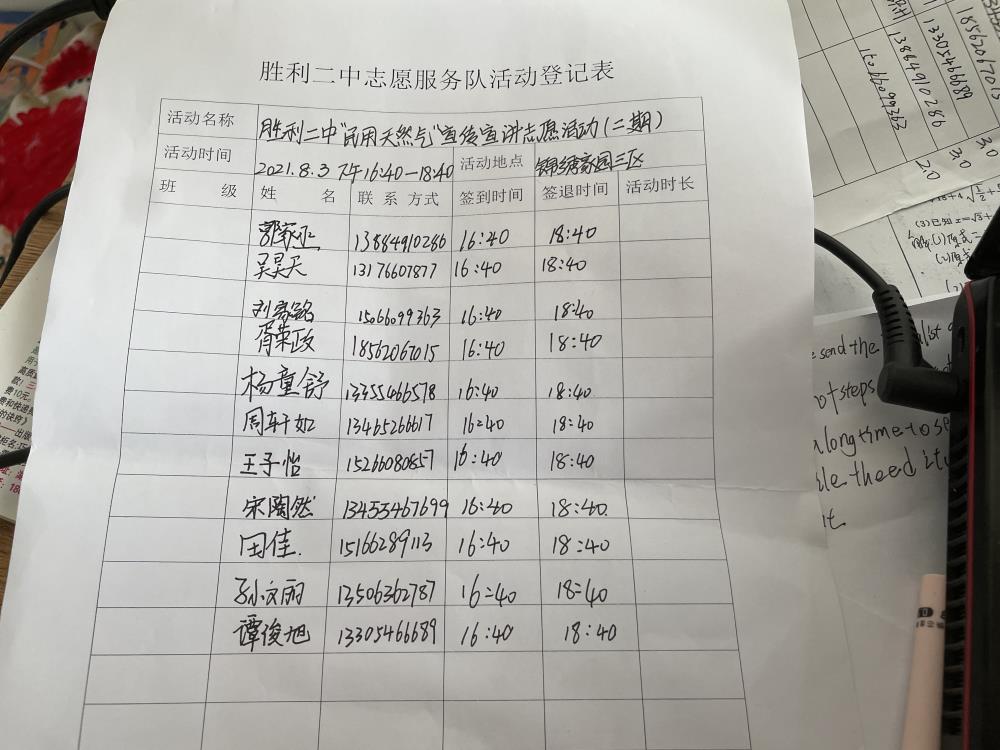 胜利二中志愿服务队活动登记表
活动名称 胜利二中"民用天然气"宣传宣讲志愿活动(二期)
活动时间 2021.8.3 下午16:40-18:40 活动地点 锦绣家园三区
班 级 姓 名 联系方式 签到时间 签退时间 活动时长
13884910286 16:40 18:40
吴昊天 13176607877 16:40 18:40
刘家铭 15066099363 16:40 18:40
胥荣政 18562067015 16:40 18:40
杨童舒 13355466578 16:40 18:40
周轩如 13465266617 16:40 18:40
王子怡 15266080857 16:40 18:40
宋陶然 13455467699 16:40 18:40
田佳 15166289113 16:40 18:40
孙文丽 13506362787 16:40 18:40
谭俊旭 13305466689 16:40 18:40
18562067015
13305466689 3.0
13864910286 3.0
15066099363 2.0
send the
steps
long time to